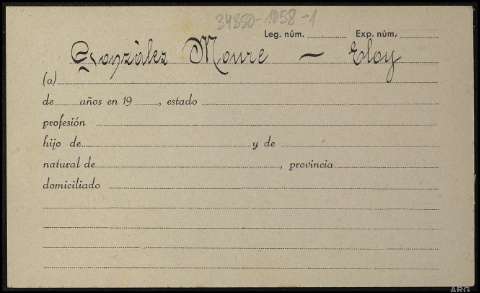 34850-1058-1
Leg. núm. Exp. núm.
González Moure — Eloy
(a)
de años en 19 , estado
profesión
hijo de y de
natural de , provincia
domiciliado